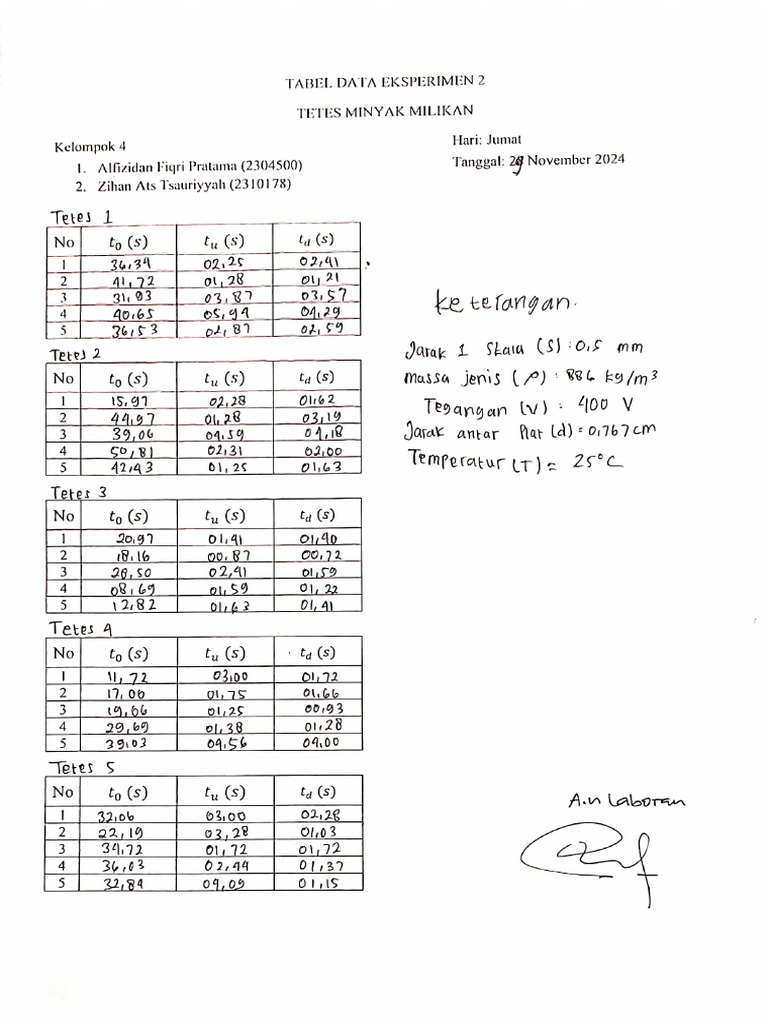 TABEL DATA EKSPERIMEN 2
TETES MINYAK MILIKAN
Kelompok 4
1. Alfizidan Fiqri Pratama (2304500)
2. Zihan Ats Tsauriyyah (2310178)
Hari: Jumat
Tanggal: 29 November 2024
Tetes 1
No t₀ (s) tᵤ (s) t_d (s)
1 36,34 02,25 02,41
2 41,72 01,28 01,21
3 31,93 03,87 03,57
4 40,65 05,94 04,29
5 36,53 02,87 02,59
Tetes 2
No t₀ (s) tᵤ (s) t_d (s)
1 15,97 02,28 01,62
2 44,97 01,28 03,19
3 39,06 04,59 04,18
4 50,81 02,31 02,00
5 42,43 01,25 01,63
Tetes 3
No t₀ (s) tᵤ (s) t_d (s)
1 20,97 01,41 01,40
2 18,16 00,87 00,72
3 28,50 02,41 01,59
4 08,69 01,59 01,22
5 12,82 01,63 01,41
Tetes 4
No t₀ (s) tᵤ (s) t_d (s)
1 11,72 03,00 01,72
2 17,00 01,75 01,66
3 19,06 01,25 00,93
4 29,69 01,38 01,28
5 39,03 04,56 04,00
Tetes 5
No t₀ (s) tᵤ (s) t_d (s)
1 32,06 03,00 02,28
2 22,19 03,28 01,03
3 34,72 01,72 01,72
4 36,03 02,44 01,37
5 32,84 04,09 01,15
Keterangan.
Jarak 1 skala (S) : 0,5 mm
massa jenis (ρ) : 886 kg/m³
Tegangan (V) : 400 V
Jarak antar Plat (d) = 0,767 cm
Temperatur (T) = 25°C
A.n Laboran